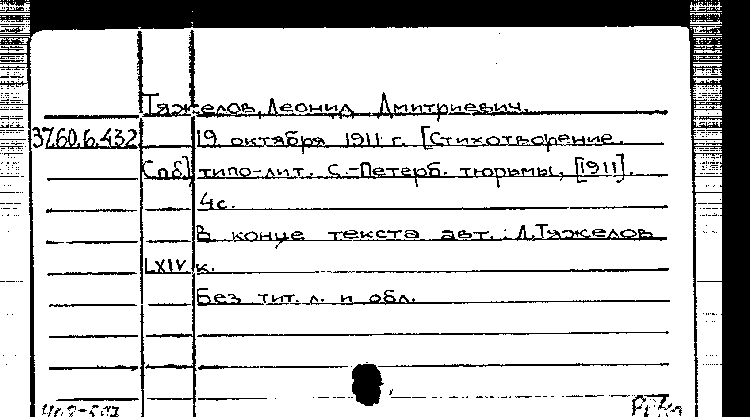 Тяжелов, Леонид Дмитриевич.
37.60.6.432 19 октября 1911 г. [Стихотворение.
Спб] типо-лит. С.-Петерб. тюрьмы, [1911].
4с.
В конце текста авт.: Л.Тяжелов
LXIV к.
Без тит. л. и обл.